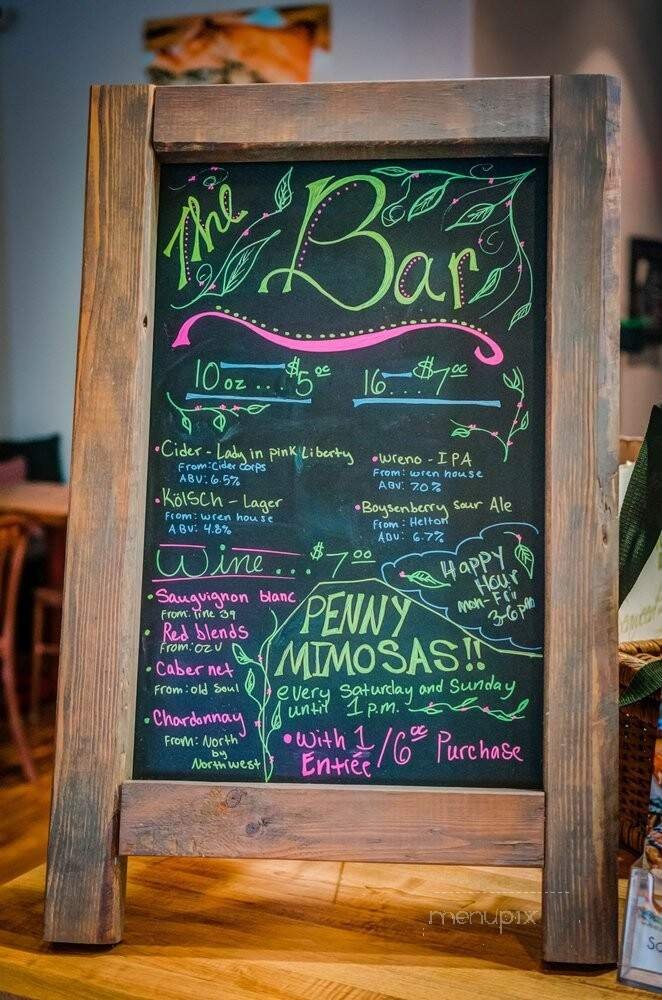 The Bar
10 oz ... $5.00
16 ... $7.00
• Cider - Lady in pink Liberty
From: Cider Corps
ABV: 6.5%
• Wreno - IPA
From: wren house
ABV: 7.0%
• KölSCH - Lager
From: wren house
ABV: 4.8%
• Boysenberry sour Ale
From: Helton
ABV: 6.7%
Wine ... $7.00
• Sauguignon blanc
From: Pine 39
• Red blends
From: OZV
• Cabernet
From: Old Soul
• Chardonnay
From: North
by
Northwest
Happy
Hour
mon-Fri
3-6pm
PENNY
MIMOSAS!!
every Saturday and Sunday
until 1 p.m.
• With 1 / 6.00 Purchase
Entrée
menupix